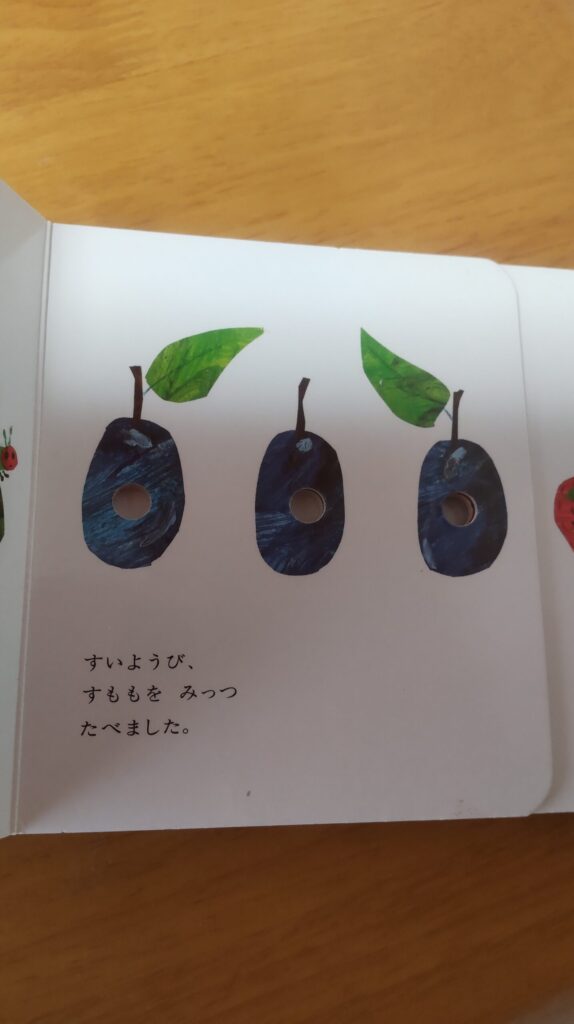 すいようび、
すももを　みっつ
たべました。